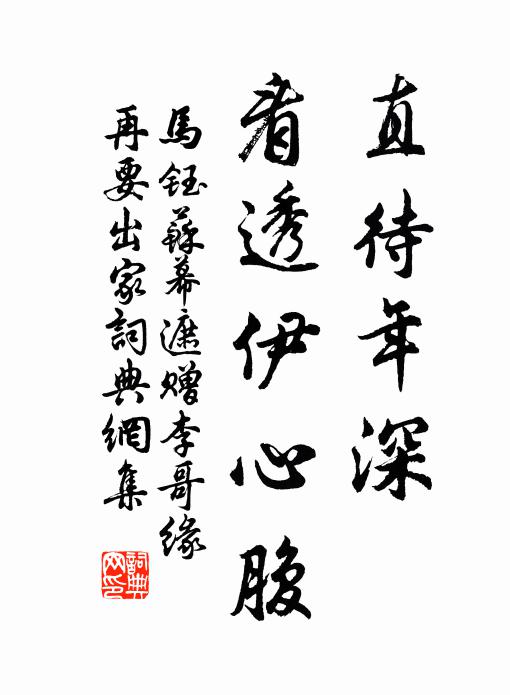 直待年深
看透伊心腹
馬鈺蘇幕遮贈李哥緣
再要出家詞典網集
詞典网印